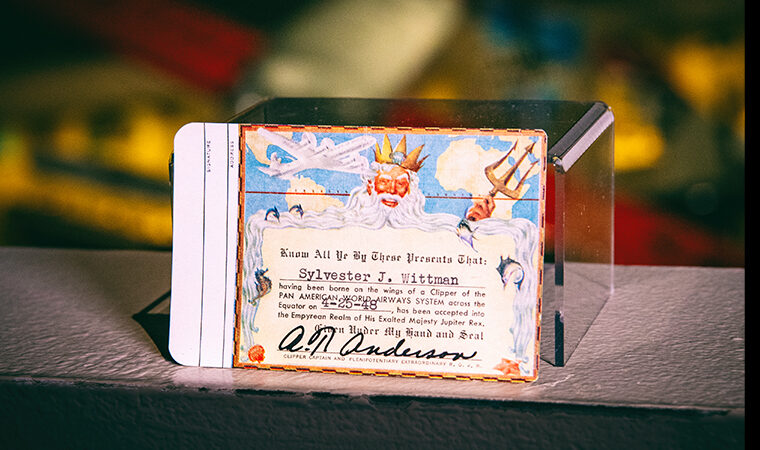 SIGNATURE
ADDRESS
Know All Ye By These Presents That:
Sylvester J. Wittman
having been borne on the wings of a Clipper of the
PAN AMERICAN WORLD AIRWAYS SYSTEM across the
Equator on 4-25-48, has been accepted into
the Empyrean Realm of His Exalted Majesty Jupiter Rex.
Given Under My Hand and Seal
A.N Anderson
CLIPPER CAPTAIN AND PLENIPOTENTIARY EXTRAORDINARY H. G. J. R.